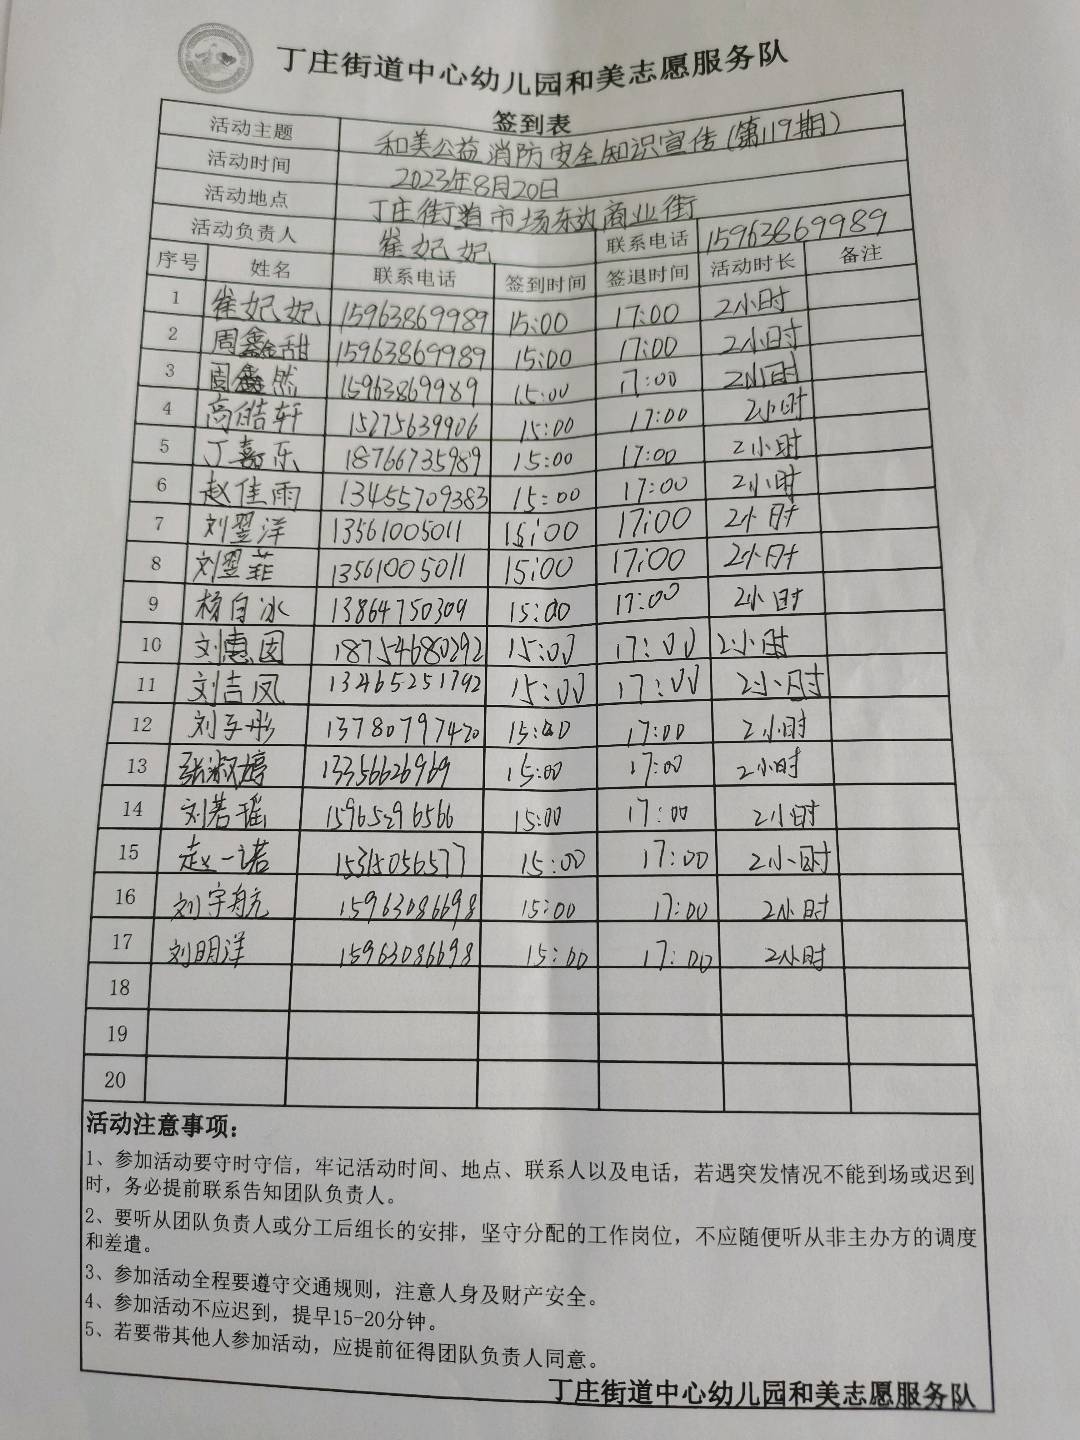 丁庄街道中心幼儿园和美志愿服务队
签到表
活动主题 和美公益消防安全知识宣传(第119期)
活动时间 2023年8月20日
活动地点 丁庄街道市场东边商业街
活动负责人 崔妃妃 联系电话 15963869989
序号 姓名 联系电话 签到时间 签退时间 活动时长 备注
1 崔妃妃 15963869989 15:00 17:00 2小时
2 周鑫甜 15963869989 15:00 17:00 2小时
3 周鑫然 15963869989 15:00 17:00 2小时
4 高皓轩 15275639906 15:00 17:00 2小时
5 丁嘉乐 18766735989 15:00 17:00 2小时
6 赵佳雨 13455709383 15:00 17:00 2小时
7 刘翌洋 13561005011 15:00 17:00 2小时
8 刘翌菲 13561005011 15:00 17:00 2小时
9 杨自冰 13864750309 15:00 17:00 2小时
10 刘惠因 18754680292 15:00 17:00 2小时
11 刘吉凤 13465251792 15:00 17:00 2小时
12 刘子彤 13780797420 15:00 17:00 2小时
13 张淑婷 13356626969 15:00 17:00 2小时
14 刘若瑶 15965296566 15:00 17:00 2小时
15 赵一诺 15315056577 15:00 17:00 2小时
16 刘宇航 15963086698 15:00 17:00 2小时
17 刘明洋 15963086698 15:00 17:00 2小时
18
19
20
活动注意事项：
1、参加活动要守时守信，牢记活动时间、地点、联系人以及电话，若遇突发情况不能到场或迟到
时，务必提前联系告知团队负责人。
2、要听从团队负责人或分工后组长的安排，坚守分配的工作岗位，不应随便听从非主办方的调度
和差遣。
3、参加活动全程要遵守交通规则，注意人身及财产安全。
4、参加活动不应迟到，提早15-20分钟。
5、若要带其他人参加活动，应提前征得团队负责人同意。
丁庄街道中心幼儿园和美志愿服务队